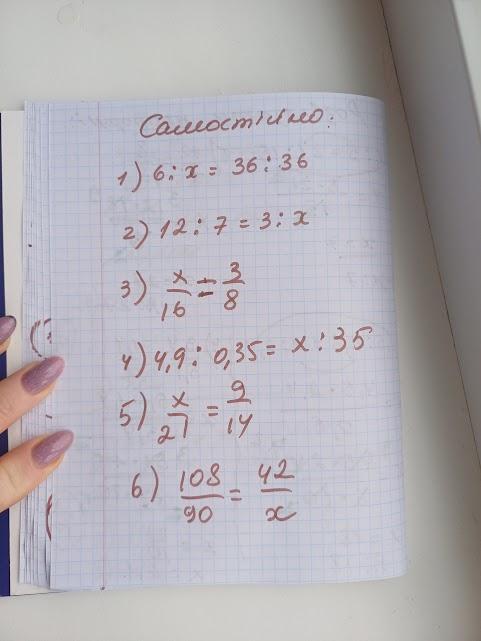 Самостійно:
1) 6 : x = 36 : 36
2) 12 : 7 = 3 : x
3) x/16 = 3/8
4) 4,9 : 0,35 = x : 35
5) x/21 = 9/14
6) 108/90 = 42/x